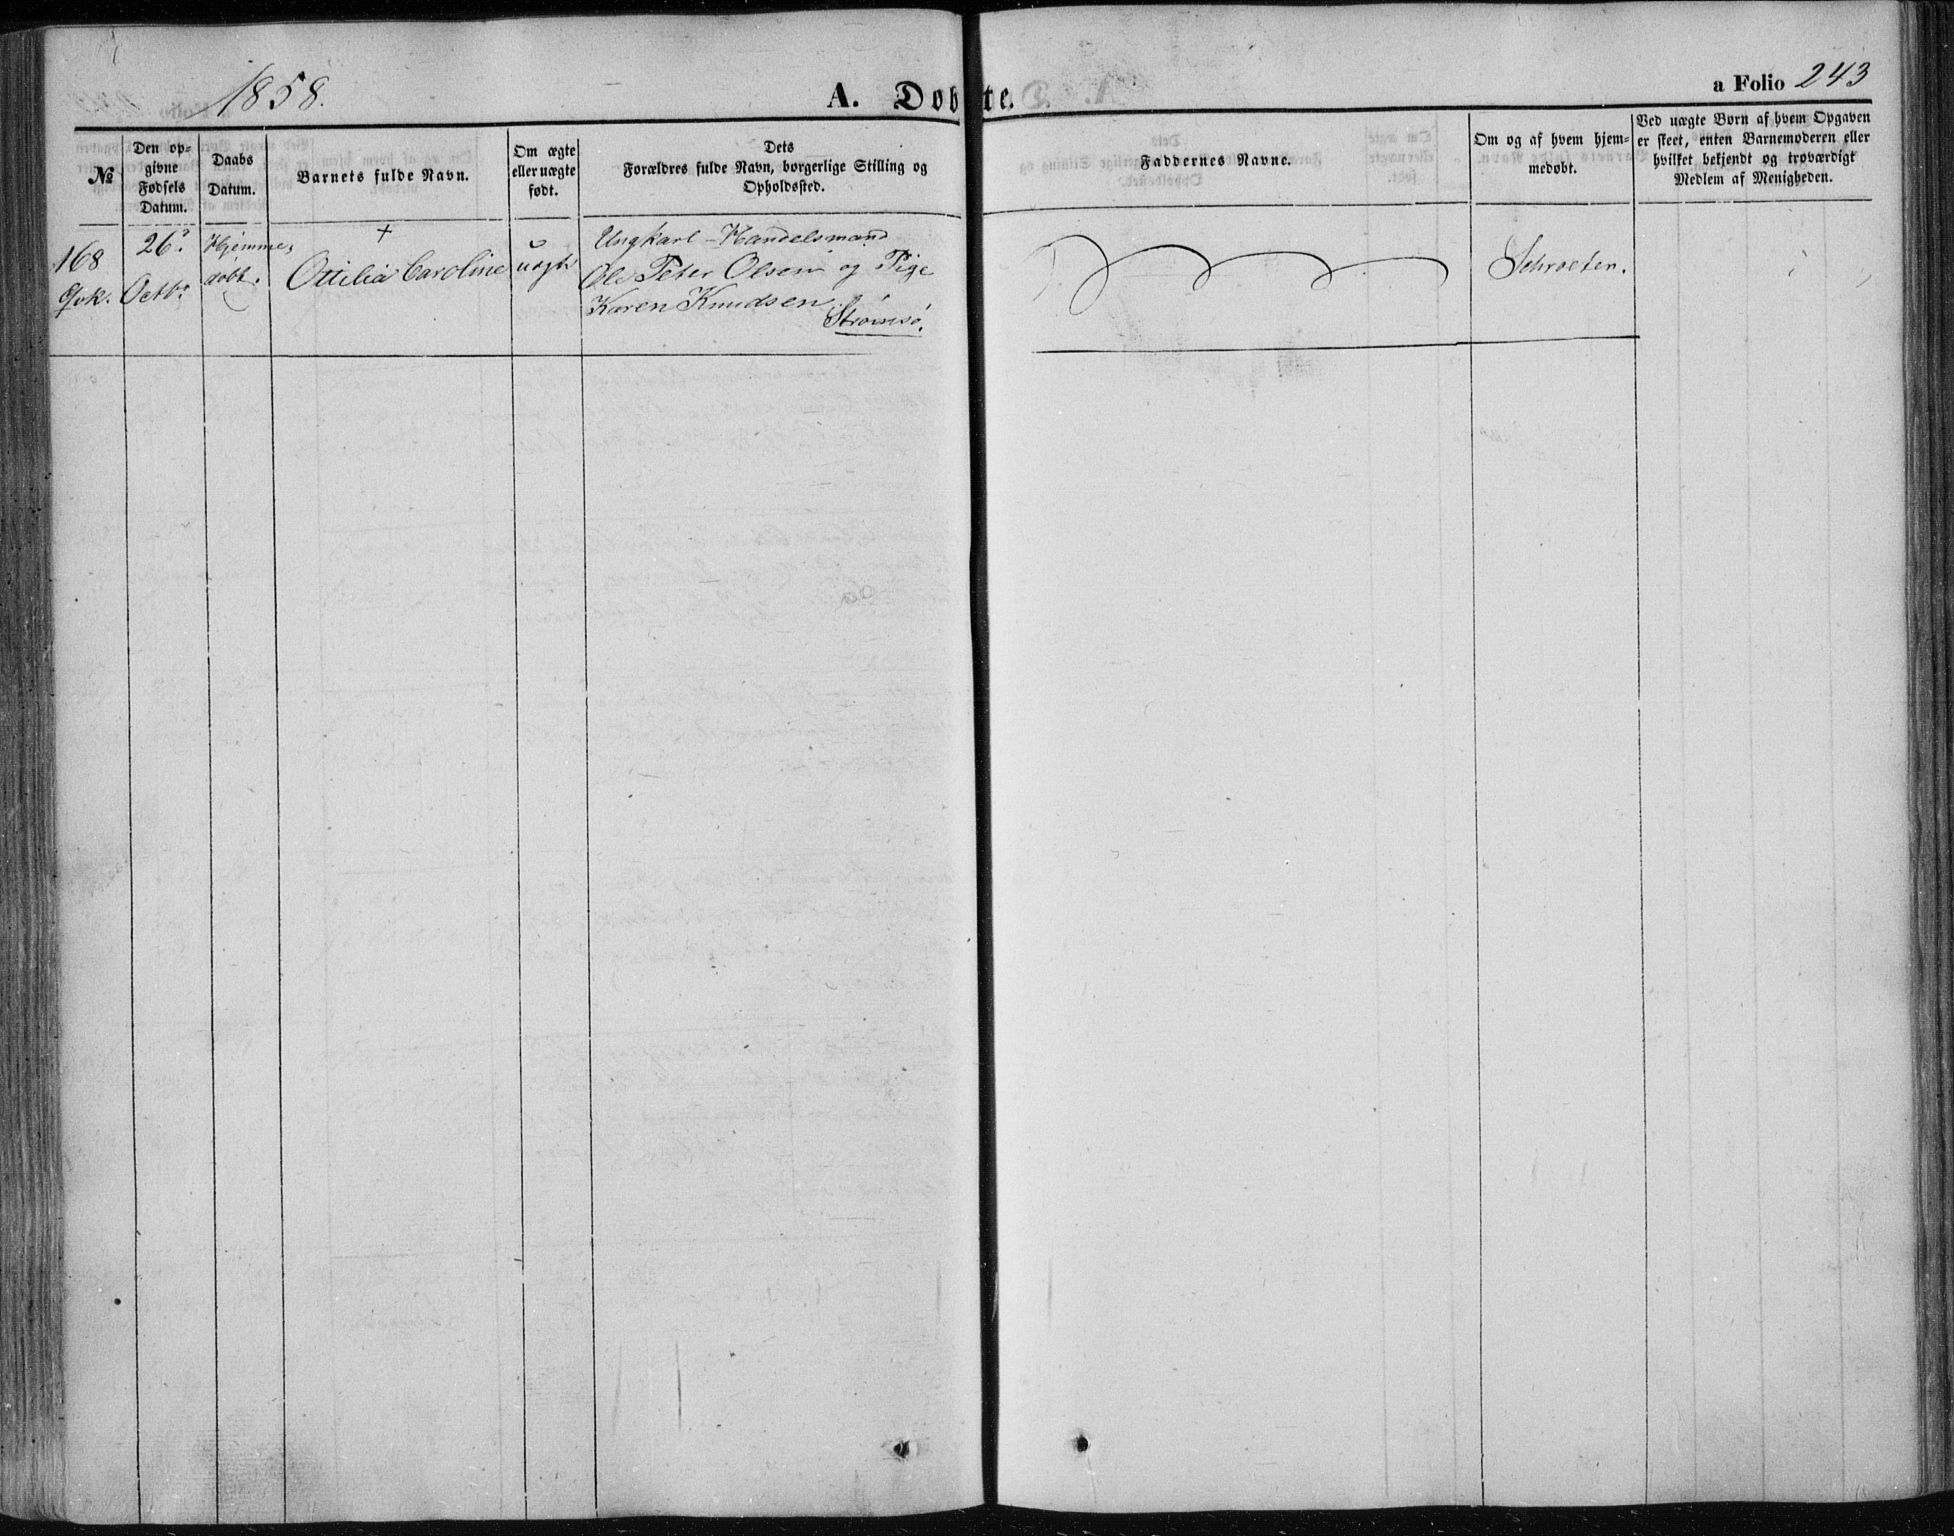 1858.
A. Døbte.
a Folio 243
№
Den op-
givne
Fødsels
Datum.
Daabs
Datum.
Barnets fulde Navn.
Om ægte
eller uægte
født.
Dets
Forældres fulde Navn, borgerlige Stilling og
Opholdssted.
Faddernes Navne.
Om og af hvem hjem-
medøbt.
Ved uægte Børn af hvem Opgaven
er skeet, enten Barnemoderen eller
hvilket bekjendt og troværdigt
Medlem af Menigheden.
168
Qvk.
26?
Octbr
Hjemme,
døbt.
+
Ottilia Caroline
uægte
Ungkarl - Handelsmand
Ole Peter Olsen og Pige
Karen Knudsen
Strømsø.
Schroeter.